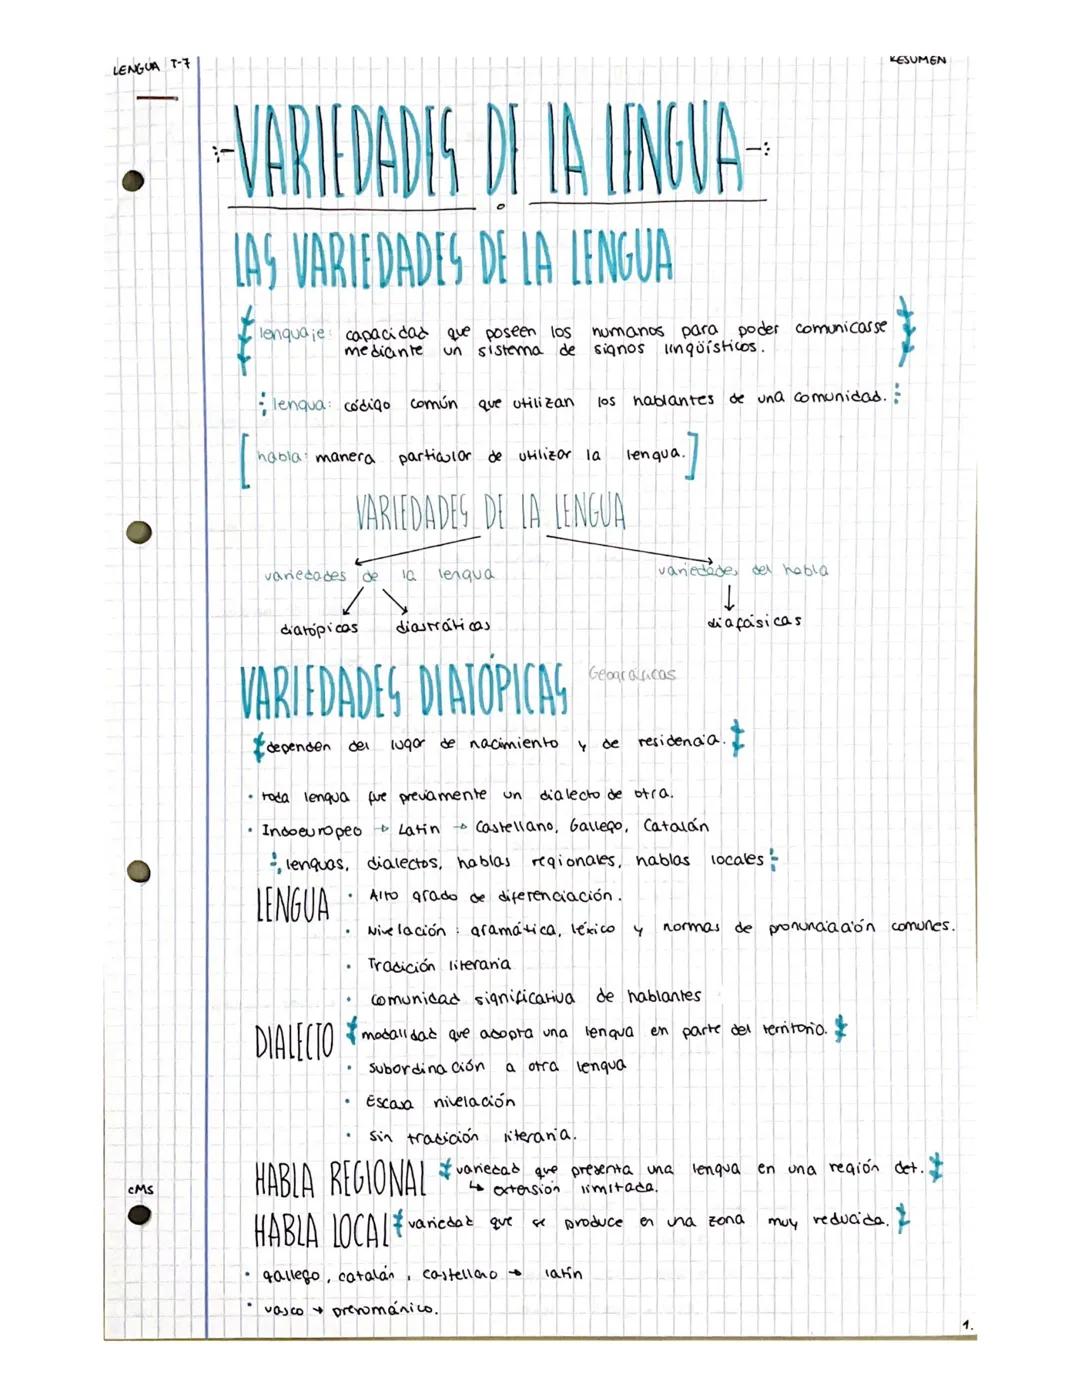 LENGUA T-7
RESUMEN
VARIEDADES DE LA LENGUA
LAS VARIEDADES DE LA LENGUA
lenguaje: capacidad que poseen los humanos para poder comunicarse
mediante un sistema de signos lingüísticos.
lengua: código común que utilizan los hablantes de una comunidad.
habla: manera particular de utilizar la lengua.
VARIEDADES DE LA LENGUA
variedades de la lengua
variedades del habla
diatópicas
diastráticas
diafásicas
VARIEDADES DIATÓPICAS Geográficas
dependen del lugar de nacimiento y de residencia.
• toda lengua fue previamente un dialecto de otra.
• Indoeuropeo → Latín → Castellano, Gallego, Catalán
lenguas, dialectos, hablas regionales, hablas locales
LENGUA • Alto grado de diferenciación.
• Nivelación: gramática, léxico y normas de pronunciación comunes.
• Tradición literaria
• comunidad significativa de hablantes
DIALECTO modalidad que adopta una lengua en parte del territorio.
• subordinación a otra lengua
• Escasa nivelación
• Sin tradición literaria.
HABLA REGIONAL variedad que presenta una lengua en una región det.
↳ extensión limitada.
HABLA LOCAL variedad que se produce en una zona muy reducida.
• gallego, catalán, castellano → latín
• vasco → prerománico.
CMS
1.